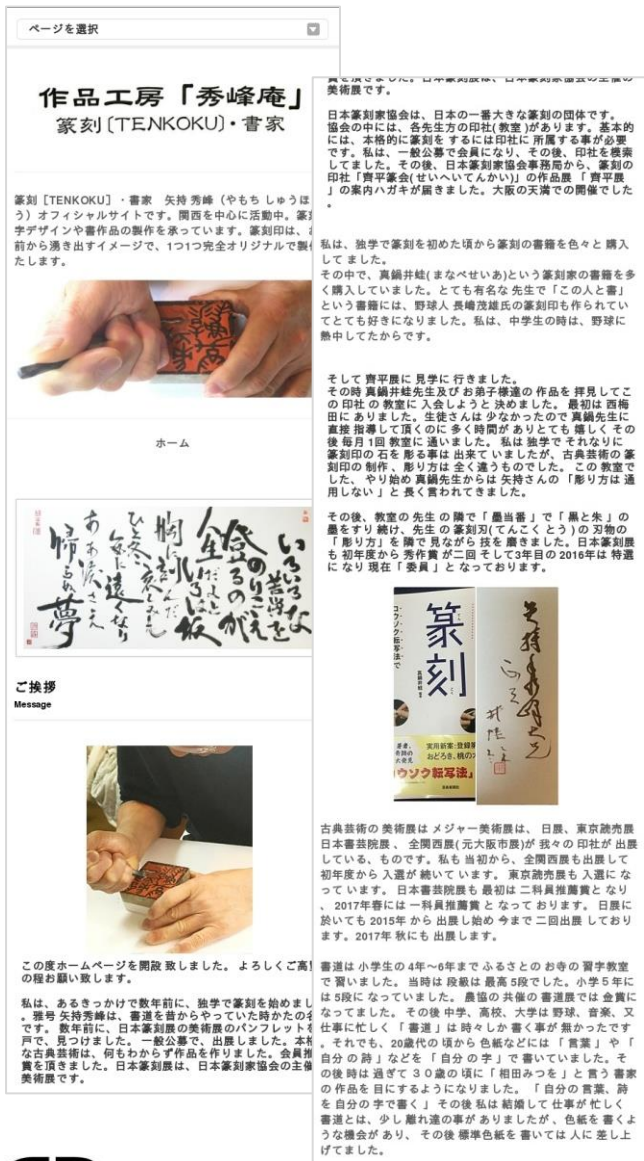 ページを選択
作品工房「秀峰庵」
篆刻〔TENKOKU〕・書家
篆刻［TENKOKU］・書家　矢持 秀峰（やもち しゅうほ
う）オフィシャルサイトです。関西を中心に活動中。篆
字デザインや書作品の製作を承っています。篆刻印は、
前から湧き出すイメージで、1つ1つ完全オリジナルで製
たします。
ホーム
いろいろな
苦労を
のりこえ
登るのが
人生
だよと
いろは坂
胸に刻んだ
ひと冬
気に遠くなり
ああ
帰らぬ夢
ご挨拶
Message
この度ホームページを開設 致しました。 よろしくご高
の程お願い致します。
私は、あるきっかけで数年前に、独学で篆刻を始めまし
。雅号 矢持秀峰は、書道を昔からやっていた時かたの
です。 数年前に、日本篆刻展の美術展のパンフレットを
戸で、見つけました。 一般公募で、出展しました。本
な古典芸術は、何もわからず作品を作りました。会員推
賞を頂きました。日本篆刻展は、日本篆刻家協会の主催
美術展です。
賞を頂きました。日本篆刻展は、日本篆刻家協会の主催の
美術展です。
日本篆刻家協会は、日本の一番大きな篆刻の団体です。
協会の中には、各先生方の印社(教室)があります。基本的
には、本格的に篆刻を するには印社に 所属する事が必要
です。私は、一般公募で会員になり、その後、印社を模索
してました。その後、日本篆刻家協会事務局から、篆刻の
印社「齊平篆会(せいへいてんかい)」の作品展「 齊平展
」の案内ハガキが届きました。大阪の天満での開催でした
。
私は、独学で篆刻を初めた頃から篆刻の書籍を色々と 購入
して ました。
その中で、真鍋井蛙(まなべせいあ)という篆刻家の書籍を多
く購入していました。とても有名な 先生で「この人と書」
という書籍には、野球人 長嶋茂雄氏の篆刻印も作られてい
てとても好きになりました。私は、中学生の時は、野球に
熱中してたからです。
そして 齊平展に 見学に 行きました。
その時 真鍋井蛙先生及び お弟子様達の 作品を 拝見してこ
の 印社 の 教室に 入会しようと 決めました。 最初は 西梅
田に ありました。生徒さんは 少なかったので 真鍋先生に
直接 指導して頂くのに 多く時間が ありとても 嬉しく その
後 毎月1回 教室に 通いました。 私は 独学で それなりに
篆刻印の 石を 彫る事は 出来て いましたが、古典芸術の 篆
刻印の 制作 、彫り方は 全く違うものでした。 この 教室で
した、 やり始め 真鍋先生からは 矢持さんの 「彫り方は 通
用しない 」と 長く言われてきました。
その後、教室の 先生の 隣で「 墨当番 」で「 黒と朱 」の
墨をすり 続け、先生の 篆刻刃( てんこく とう ) の 刃物の
「 彫り方」を 隣で 見ながら 技を 磨きました。日本篆刻展
も 初年度から 秀作賞 が二回 そして3年目の 2016年は 特選
に なり 現在「 委員 」と なっております。
篆刻
コウソク転写法で
真鍋井蛙
実用新案:登録
おどろき、桃の
コウソク転写法」
古典芸術の 美術展は メジャー美術展は、 日展、東京読売展
日本書芸院展 、 全関西展( 元大阪市展)が 我々の 印社が 出展
している、ものです。私も 当初から、全関西展も出展して
初年度から 入選が 続いて います。 東京読売展も 入選に な
って います。 日本書芸院展も 最初は 二科員推薦賞と なり
、 2017年春には 一科員推薦賞 と なって おります。 日展に
於いても 2015年 から 出展し始め 今まで 二回出展 しており
ます。2017年 秋にも 出展します。
書道は 小学生の 4年〜6年まで ふるさとの お寺の 習字教室
で 習いました。 当時は 段級は 最高 5段でした。小学 5年に
は 5段に なっていました。 農協の 共催の 書道展では 金賞に
なってました。 その後 中学、高校、大学は 野球、音楽、又
仕事に忙しく 「 書道 」は 時々しか 書く事が 無かったです
。それでも、20歳代の 頃から 色紙などには 「 言葉 」 や「
自分 の 詩 」などを 「 自分 の 字 」で 書いていました。そ
の後 時は 過ぎて ３０歳 の 頃に 「 相田みつを 」と 言う 書家
の 作品を 目にするようになりました。 「 自分の 言葉、詩
を 自分の 字で書く 」 その後 私は 結婚して 仕事が 忙しく
書道とは、少し 離れ達の事が ありましたが、色紙を 書くよ
うな機会が あり、 その後 標準色紙を 書いては 人に 差し上
げてました。